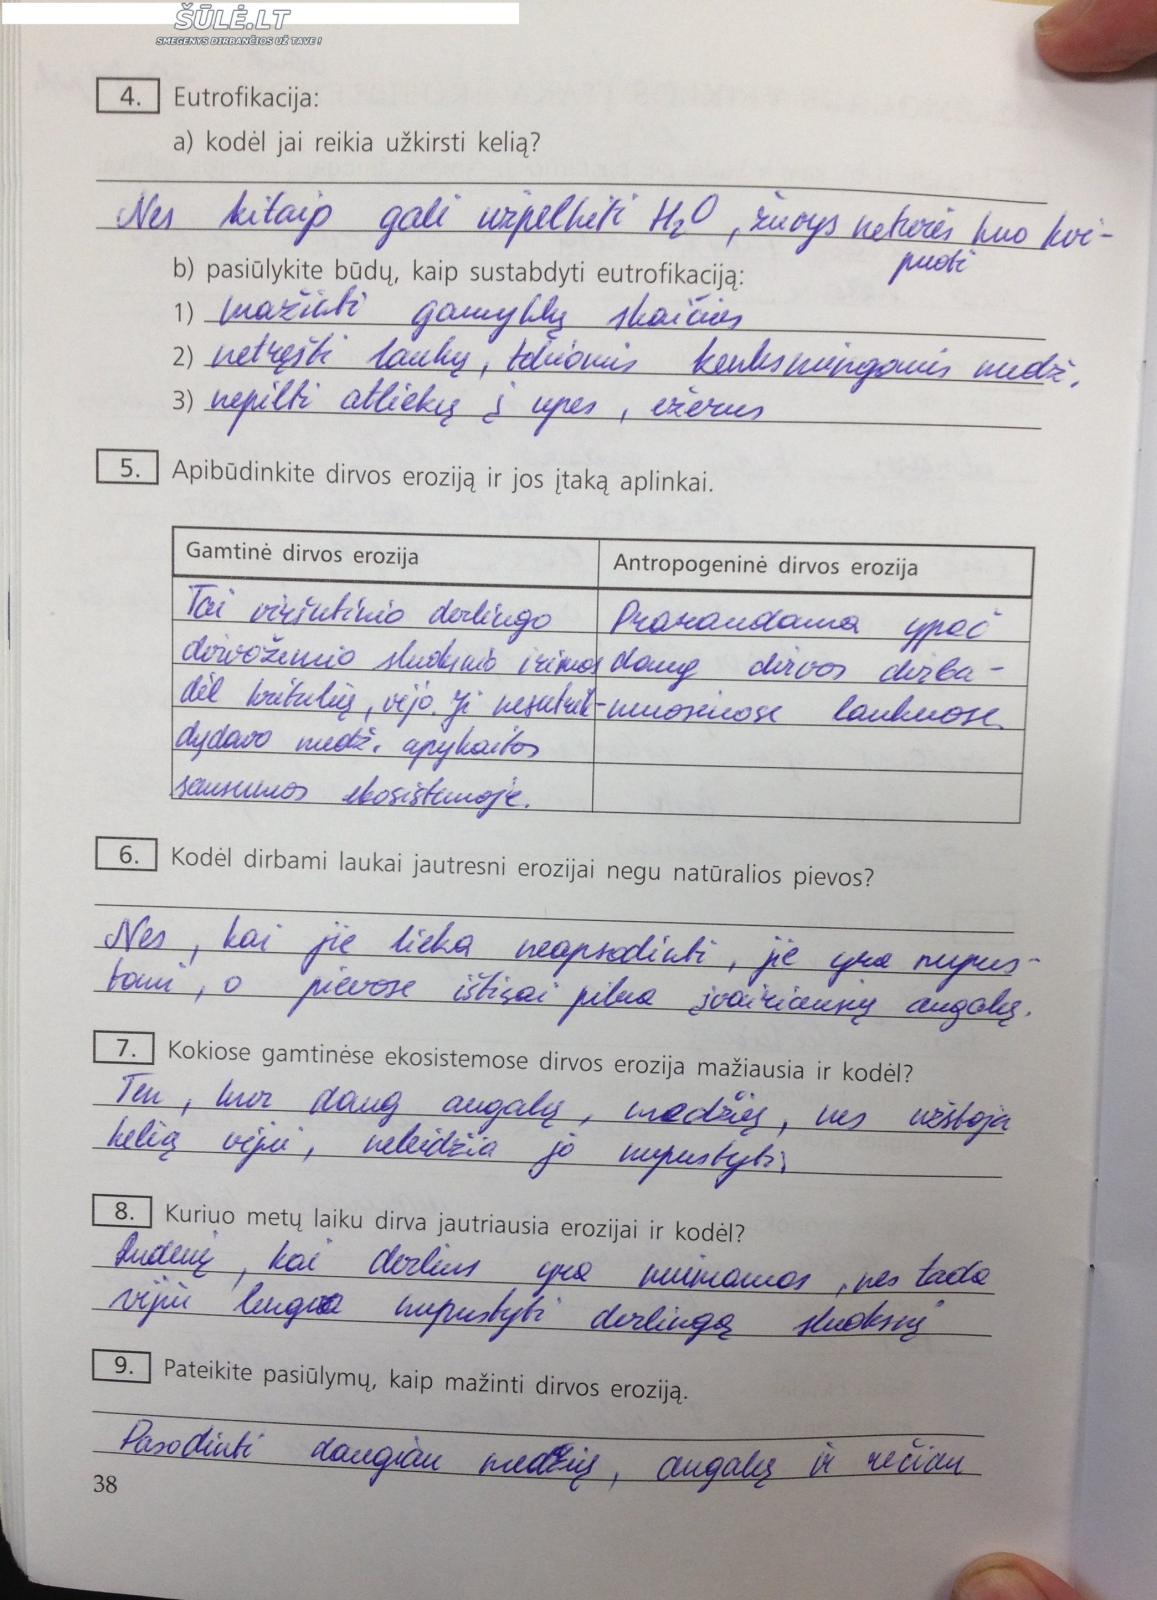 ŠŪLĖ.LT
SMEGENYS DIRBANČIOS UŽ TAVE!
4. Eutrofikacija:
a) kodėl jai reikia užkirsti kelią?
Nes kitaip gali užpelkėti H₂O, žuvys neturės kuo kvė-
puoti
b) pasiūlykite būdų, kaip sustabdyti eutrofikaciją:
1) mažinti gamyklų skaičius
2) netręšti laukų, kenksmingomis medž.
3) nepilti atliekų į upes, ežerus
5. Apibūdinkite dirvos eroziją ir jos įtaką aplinkai.
Gamtinė dirvos erozija
Tai viršutinio derlingo
dirvožemio sluoksnio irimas
dėl kritulių, vėjo. Ji nesutrik-
dydavo medž. apykaitos
sausumos ekosistemoje.
Antropogeninė dirvos erozija
Prarandama ypač
daug dirvos dirba-
muosiuose laukuose.
6. Kodėl dirbami laukai jautresni erozijai negu natūralios pievos?
Nes, kai jie lieka neapsodinti, jie yra nupus-
tomi, o pievose ištisai pilna įvairiausių augalų.
7. Kokiose gamtinėse ekosistemose dirvos erozija mažiausia ir kodėl?
Ten, kur daug augalų, medžių, nes užstoja
kelią vėjui, neleidžia jo nupustyti.
8. Kuriuo metų laiku dirva jautriausia erozijai ir kodėl?
Rudenį, kai derlius yra nuimamas, nes tada
vėjui lengva nupustyti derlingą sluoksnį
9. Pateikite pasiūlymų, kaip mažinti dirvos eroziją.
Pasodinti daugiau medžių, augalų ir rečiau
38